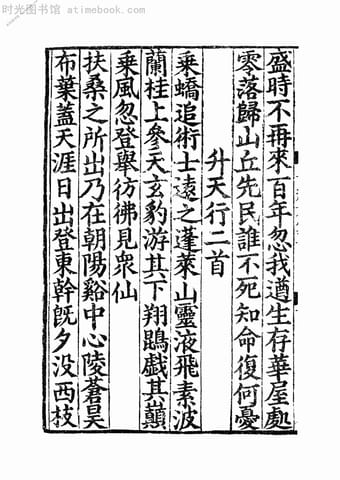 时光图书馆 - atimebook.com
盛時不再來百年忽我遒生存華屋處
零落歸山丘先民誰不死知命復何憂
升天行二首
乘蹻追術士遠之蓬萊山靈液飛素波
蘭桂上參天玄豹游其下翔鵾戲其巔
乘風忽登舉彷彿見衆仙
扶桑之所出乃在朝陽谿中心陵蒼昊
布葉蓋天涯日出登東幹旣夕没西枝